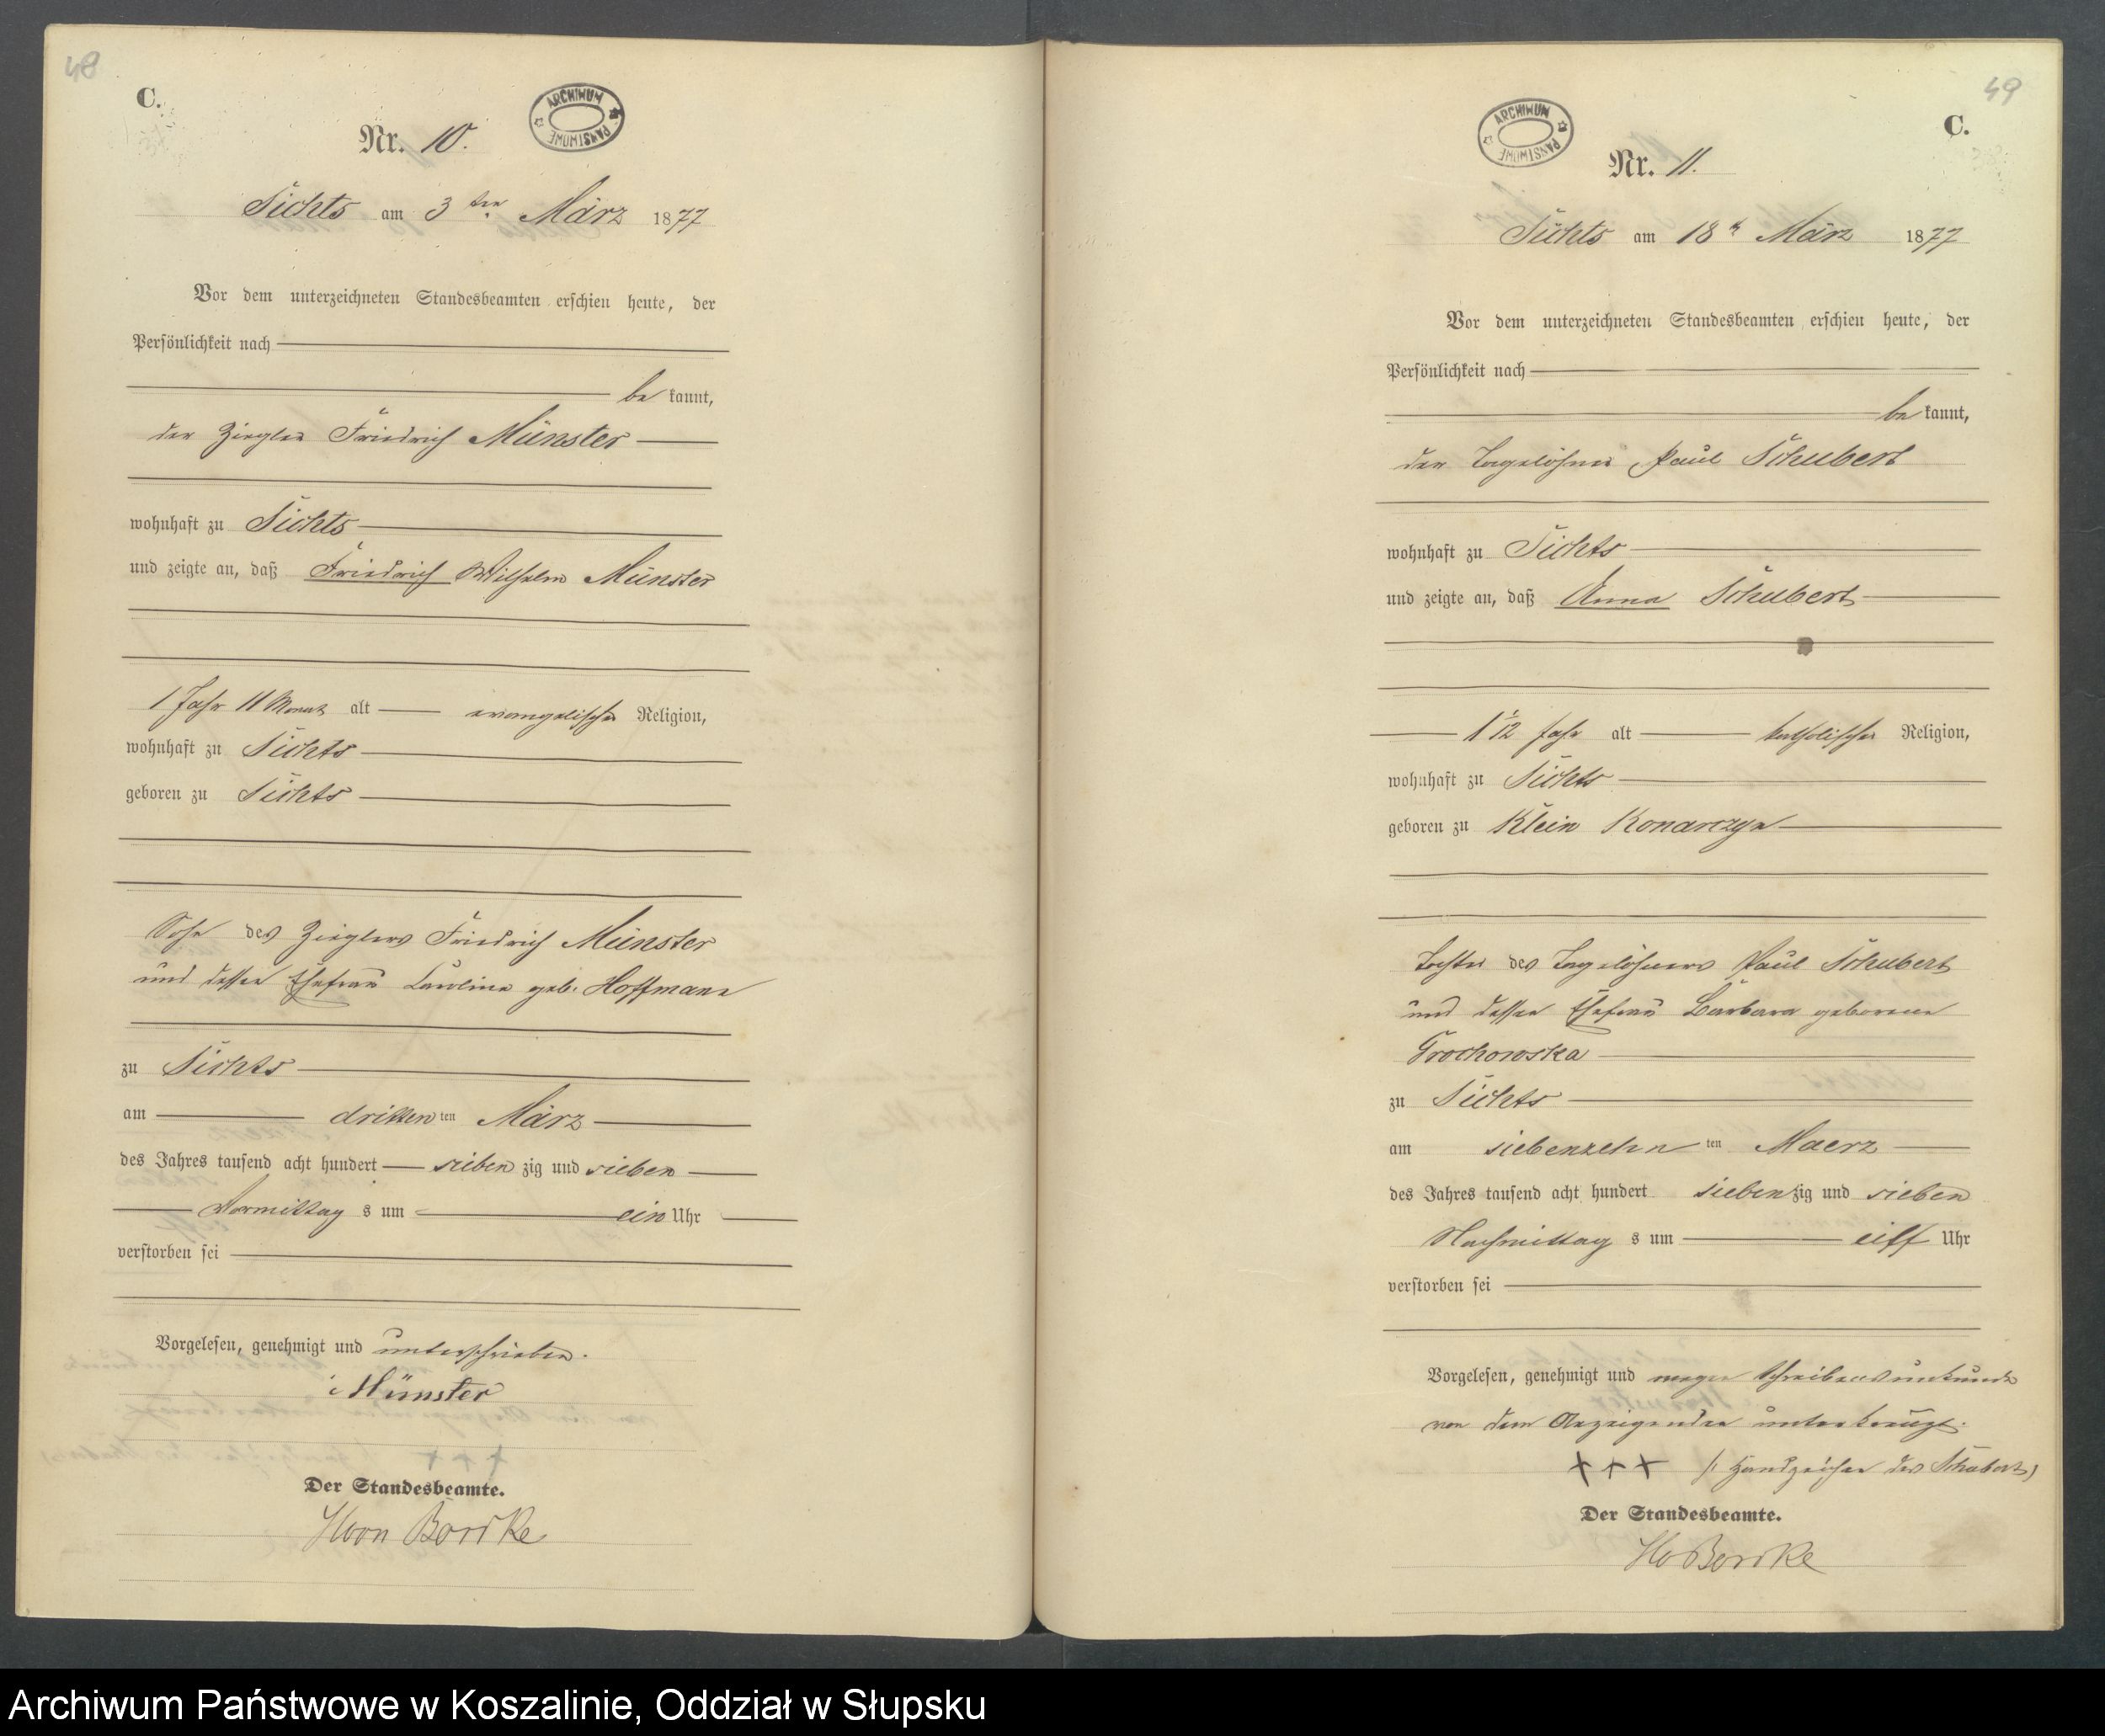 48
C.
ARCHIWUM PAŃSTWOWE
Nr. 10.
Sichts am 3ten März 1877
Vor dem unterzeichneten Standesbeamten erschien heute, der
Persönlichkeit nach
be kannt,
der Ziegler Friedrich Münster
wohnhaft zu Sichts
und zeigte an, daß Friedrich Wilhelm Münster
1 Jahr 11 Monat alt evangelischer Religion,
wohnhaft zu Sichts
geboren zu Sichts
Sohn des Zieglers Friedrich Münster
und dessen Ehefrau Karoline geb. Hoffmann
zu Sichts
am dritten ten März
des Jahres tausend acht hundert sieben zig und sieben
Vormittag s um ein Uhr
verstorben sei
Vorgelesen, genehmigt und unterschrieben.
Münster
Der Standesbeamte.
HvonBorcke
49
C.
ARCHIWUM PAŃSTWOWE
Nr. 11.
Sichts am 18t März 1877
Vor dem unterzeichneten Standesbeamten erschien heute, der
Persönlichkeit nach
be kannt,
der Tagelöhner Paul Schubert
wohnhaft zu Sichts
und zeigte an, daß Anna Schubert
1 1/12 Jahr alt katholischer Religion,
wohnhaft zu Sichts
geboren zu Klein Konarczyn
Tochter des Tagelöhners Paul Schubert
und dessen Ehefrau Barbara geborene
Grochowska
zu Sichts
am siebenzehn ten Maerz
des Jahres tausend acht hundert sieben zig und sieben
Nachmittag s um eilf Uhr
verstorben sei
Vorgelesen, genehmigt und wegen Schreibensunkunde
von dem Anzeigenden unterkreuzt.
+++ (: Handzeichen des Schubert)
Der Standesbeamte.
HvBorcke
Archiwum Państwowe w Koszalinie, Oddział w Słupsku